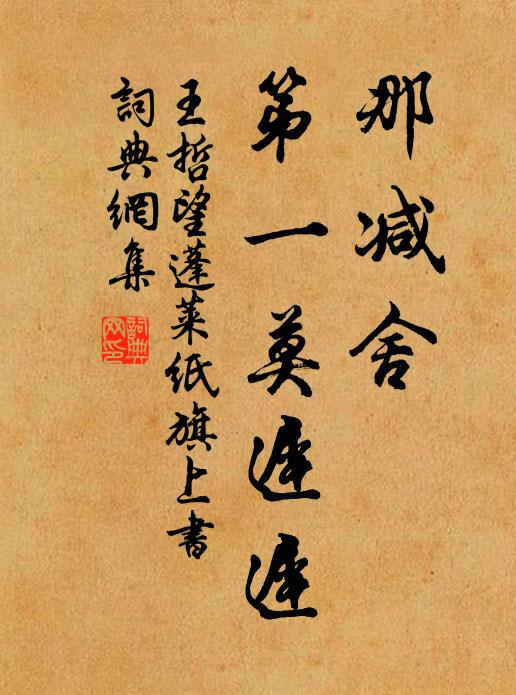 那减舍
第一莫遲遲
王哲望蓬萊紙旗上書
詞典網集
詞典網印